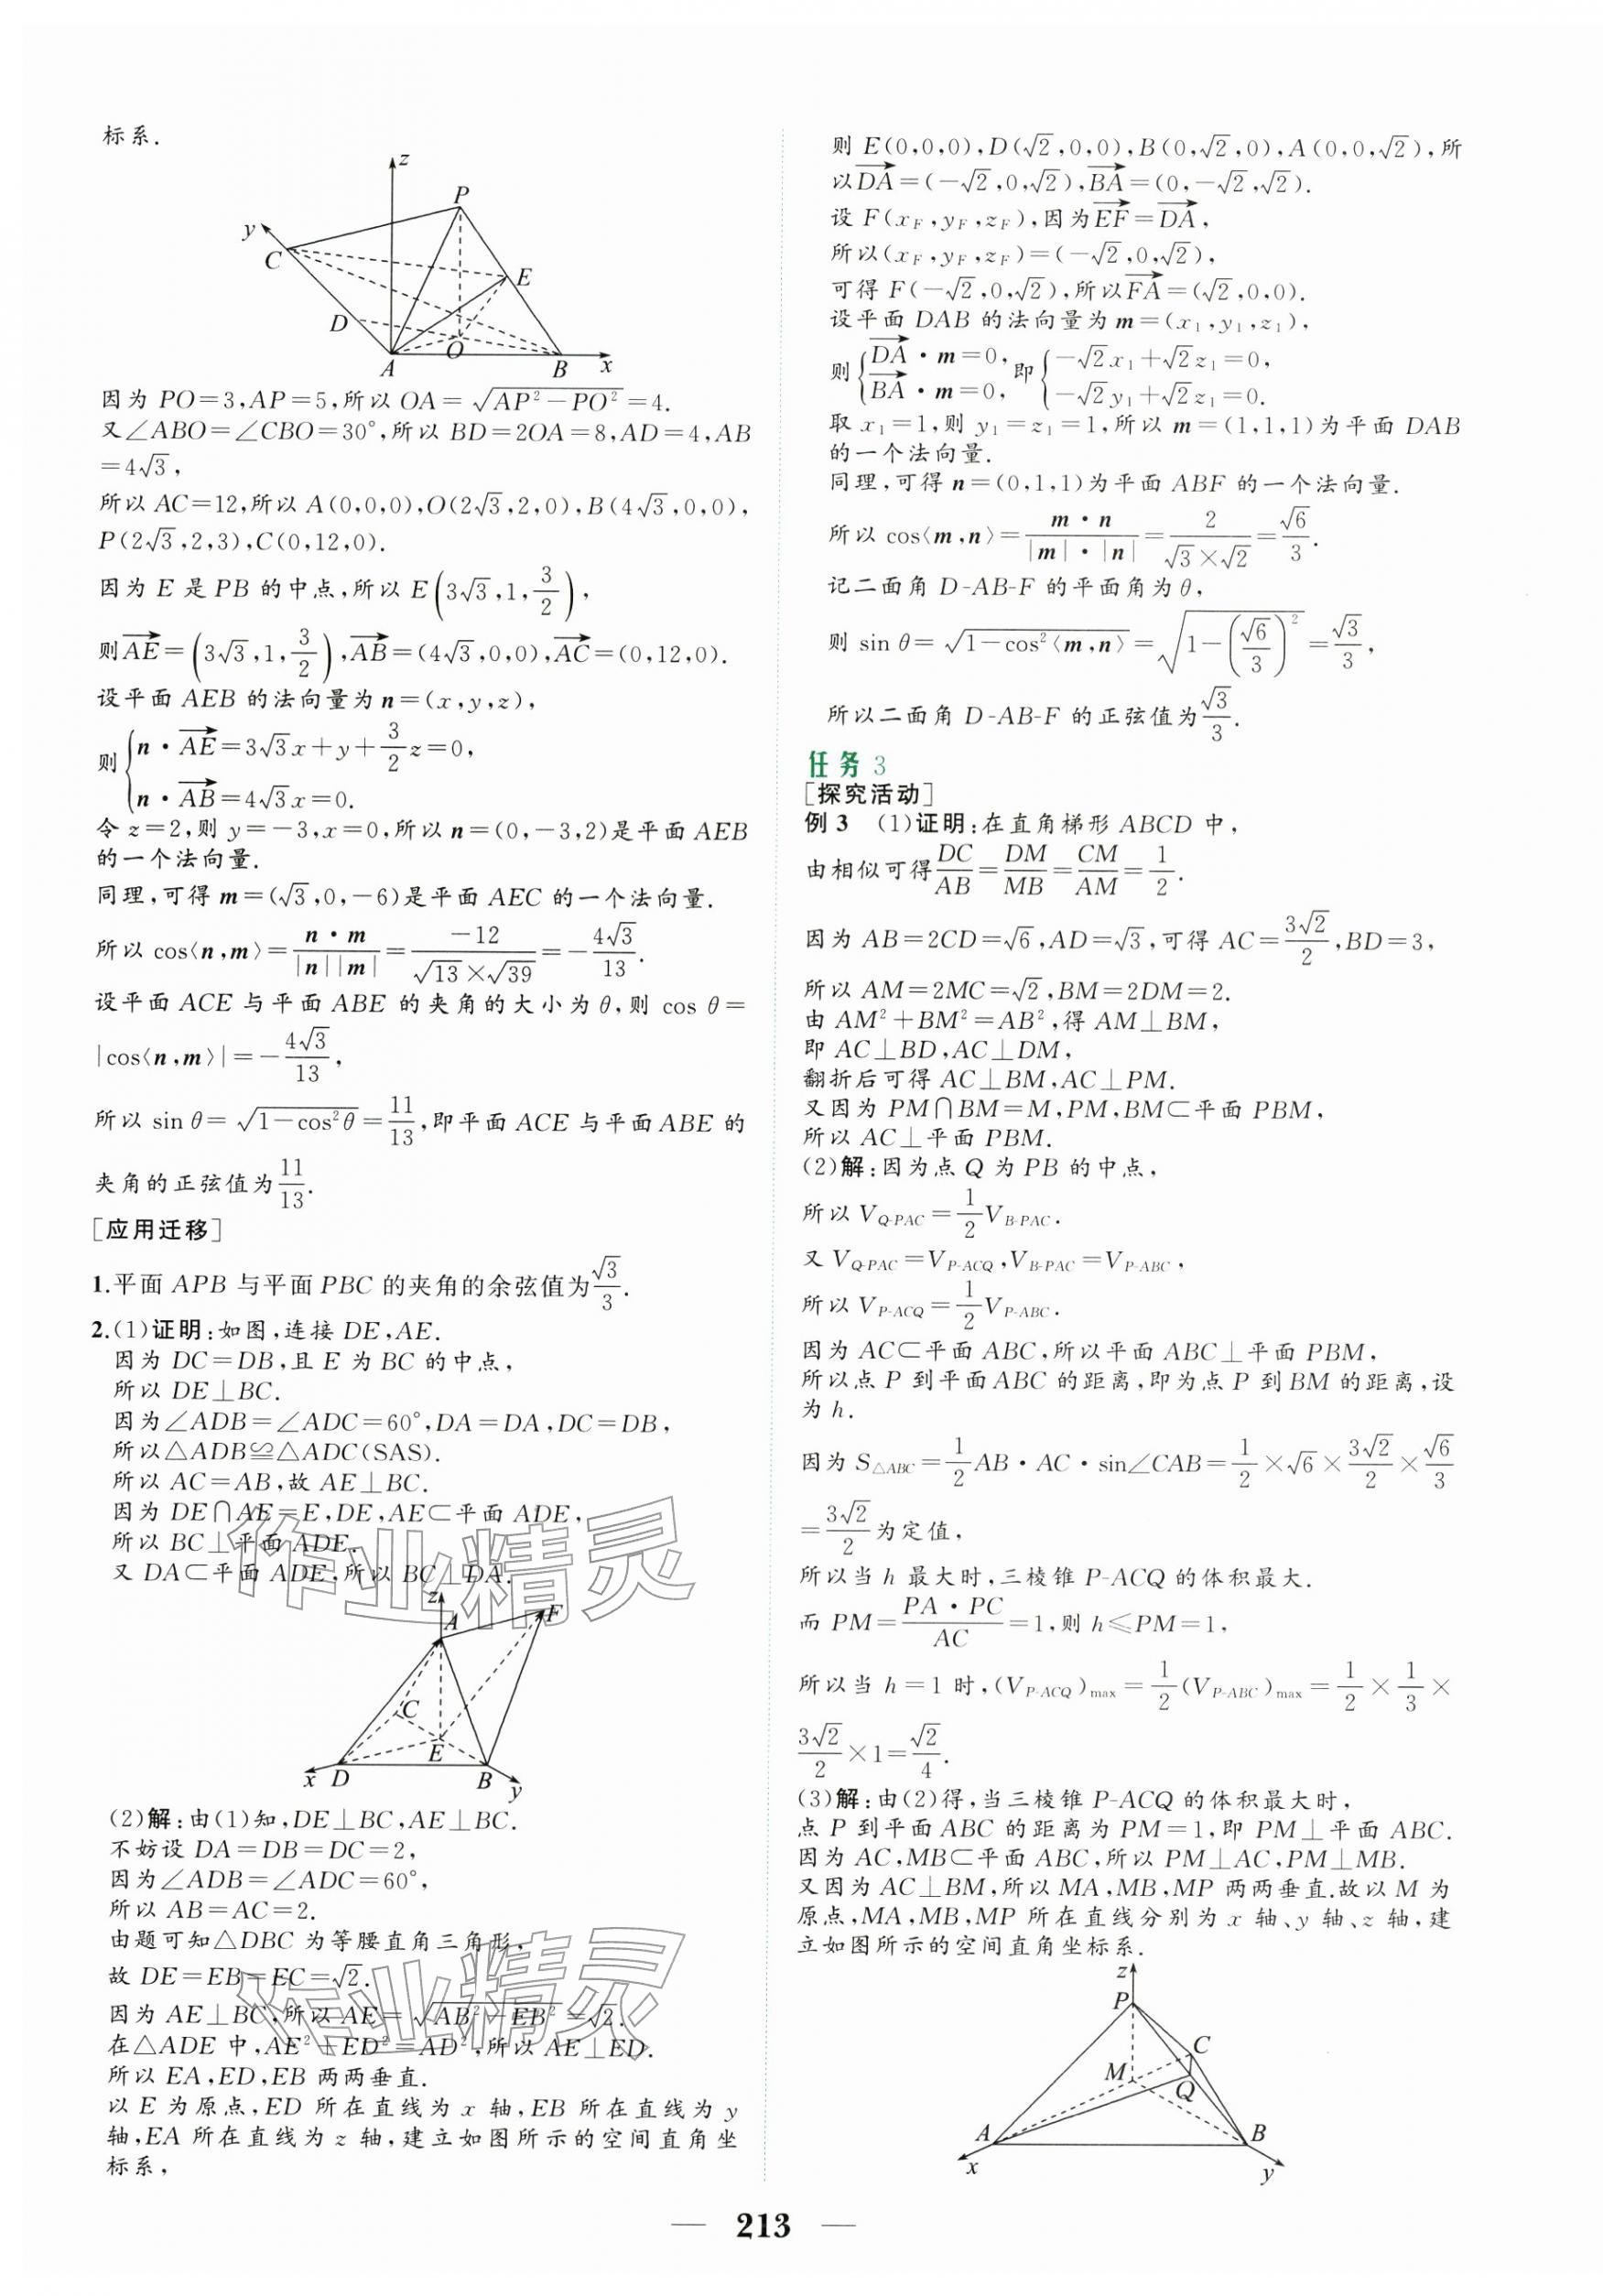 标系.
z
P
y
C
E
D
A
O
B
x
因为 PO=3,AP=5,所以 OA=√(AP²-PO²)=4.
又∠ABO=∠CBO=30°,所以 BD=2OA=8,AD=4,AB
=4√3,
所以 AC=12,所以 A(0,0,0),O(2√3,2,0),B(4√3,0,0),
P(2√3,2,3),C(0,12,0).
因为 E 是 PB 的中点,所以 E(3√3,1,3/2),
则AE→=(3√3,1,3/2),AB→=(4√3,0,0),AC→=(0,12,0).
设平面 AEB 的法向量为 n=(x,y,z),
则{n·AE→=3√3x+y+3/2z=0,
n·AB→=4√3x=0.
令 z=2,则 y=-3,x=0,所以 n=(0,-3,2)是平面 AEB
的一个法向量.
同理,可得 m=(√3,0,-6)是平面 AEC 的一个法向量.
所以 cos⟨n,m⟩=n·m/|n||m|=-12/(√13×√39)=-4√3/13.
设平面 ACE 与平面 ABE 的夹角的大小为 θ,则 cos θ=
|cos⟨n,m⟩|=-4√3/13,
所以 sin θ=√(1-cos²θ)=11/13,即平面 ACE 与平面 ABE 的
夹角的正弦值为11/13.
[应用迁移]
1.平面 APB 与平面 PBC 的夹角的余弦值为√3/3.
2.(1)证明:如图,连接 DE,AE.
因为 DC=DB,且 E 为 BC 的中点,
所以 DE⊥BC.
因为∠ADB=∠ADC=60°,DA=DA,DC=DB,
所以△ADB≌△ADC(SAS).
所以 AC=AB,故 AE⊥BC.
因为 DE∩AE=E,DE,AE⊂平面 ADE,
所以 BC⊥平面 ADE.
又 DA⊂平面 ADE,所以 BC⊥DA.
作业精灵
z
A
F
C
E
x
D
B
y
(2)解:由(1)知,DE⊥BC,AE⊥BC.
不妨设 DA=DB=DC=2,
因为∠ADB=∠ADC=60°,
所以 AB=AC=2.
由题可知△DBC 为等腰直角三角形,
故 DE=EB=EC=√2.
因为 AE⊥BC,所以 AE=√(AB²-EB²)=√2.
在△ADE 中,AE²+ED²=AD²,所以 AE⊥ED.
作业精灵
所以 EA,ED,EB 两两垂直.
以 E 为原点,ED 所在直线为 x 轴,EB 所在直线为 y
轴,EA 所在直线为 z 轴,建立如图所示的空间直角坐
标系,
则 E(0,0,0),D(√2,0,0),B(0,√2,0),A(0,0,√2),所
以DA→=(-√2,0,√2),BA→=(0,-√2,√2).
设 F(x_F,y_F,z_F),因为EF→=DA→,
所以(x_F,y_F,z_F)=(-√2,0,√2),
可得 F(-√2,0,√2),所以FA→=(√2,0,0).
设平面 DAB 的法向量为 m=(x₁,y₁,z₁),
则{DA→·m=0, 即{-√2x₁+√2z₁=0,
BA→·m=0, -√2y₁+√2z₁=0.
取 x₁=1,则 y₁=z₁=1,所以 m=(1,1,1)为平面 DAB
的一个法向量.
同理,可得 n=(0,1,1)为平面 ABF 的一个法向量.
所以 cos⟨m,n⟩=m·n/|m|·|n|=2/(√3×√2)=√6/3.
记二面角 D-AB-F 的平面角为 θ,
则 sin θ=√(1-cos²⟨m,n⟩)=√(1-(√6/3)²)=√3/3,
所以二面角 D-AB-F 的正弦值为√3/3.
任务 3
[探究活动]
例 3 (1)证明:在直角梯形 ABCD 中,
由相似可得DC/AB=DM/MB=CM/AM=1/2.
因为 AB=2CD=√6,AD=√3,可得 AC=3√2/2,BD=3,
所以 AM=2MC=√2,BM=2DM=2.
由 AM²+BM²=AB²,得 AM⊥BM,
即 AC⊥BD,AC⊥DM,
翻折后可得 AC⊥BM,AC⊥PM.
又因为 PM∩BM=M,PM,BM⊂平面 PBM,
所以 AC⊥平面 PBM.
(2)解:因为点 Q 为 PB 的中点,
所以 V_{Q-PAC}=1/2V_{B-PAC}.
又 V_{Q-PAC}=V_{P-ACQ},V_{B-PAC}=V_{P-ABC},
所以 V_{P-ACQ}=1/2V_{P-ABC}.
因为 AC⊂平面 ABC,所以平面 ABC⊥平面 PBM,
所以点 P 到平面 ABC 的距离,即为点 P 到 BM 的距离,设
为 h.
因为 S_{△ABC}=1/2AB·AC·sin∠CAB=1/2×√6×3√2/2×√6/3
=3√2/2为定值,
所以当 h 最大时,三棱锥 P-ACQ 的体积最大.
而 PM=PA·PC/AC=1,则 h≤PM=1,
所以当 h=1 时,(V_{P-ACQ})_{max}=1/2(V_{P-ABC})_{max}=1/2×1/3×
3√2/2×1=√2/4.
(3)解:由(2)得,当三棱锥 P-ACQ 的体积最大时,
点 P 到平面 ABC 的距离为 PM=1,即 PM⊥平面 ABC.
因为 AC,MB⊂平面 ABC,所以 PM⊥AC,PM⊥MB.
又因为 AC⊥BM,所以 MA,MB,MP 两两垂直.故以 M 为
原点,MA,MB,MP 所在直线分别为 x 轴、y 轴、z 轴,建
立如图所示的空间直角坐标系.
z
P
C
M
Q
A
B
x
y
213